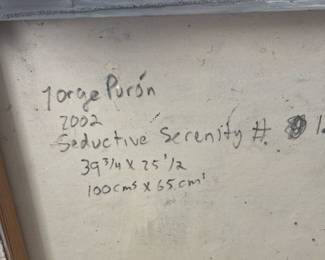 Jorge Purón
2002
Seductive Serenity #
39 3/4 x 25 1/2
100cms x 65cms